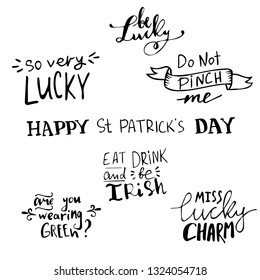 be
Lucky
so very
LUCKY
Do Not
PINCH
me
HAPPY St PATRICK'S DAY
EAT DRINK
and be
IRISH
are you
wearing
GREEN?
MISS
Lucky
CHARM
shutterstock.com · 1324054718